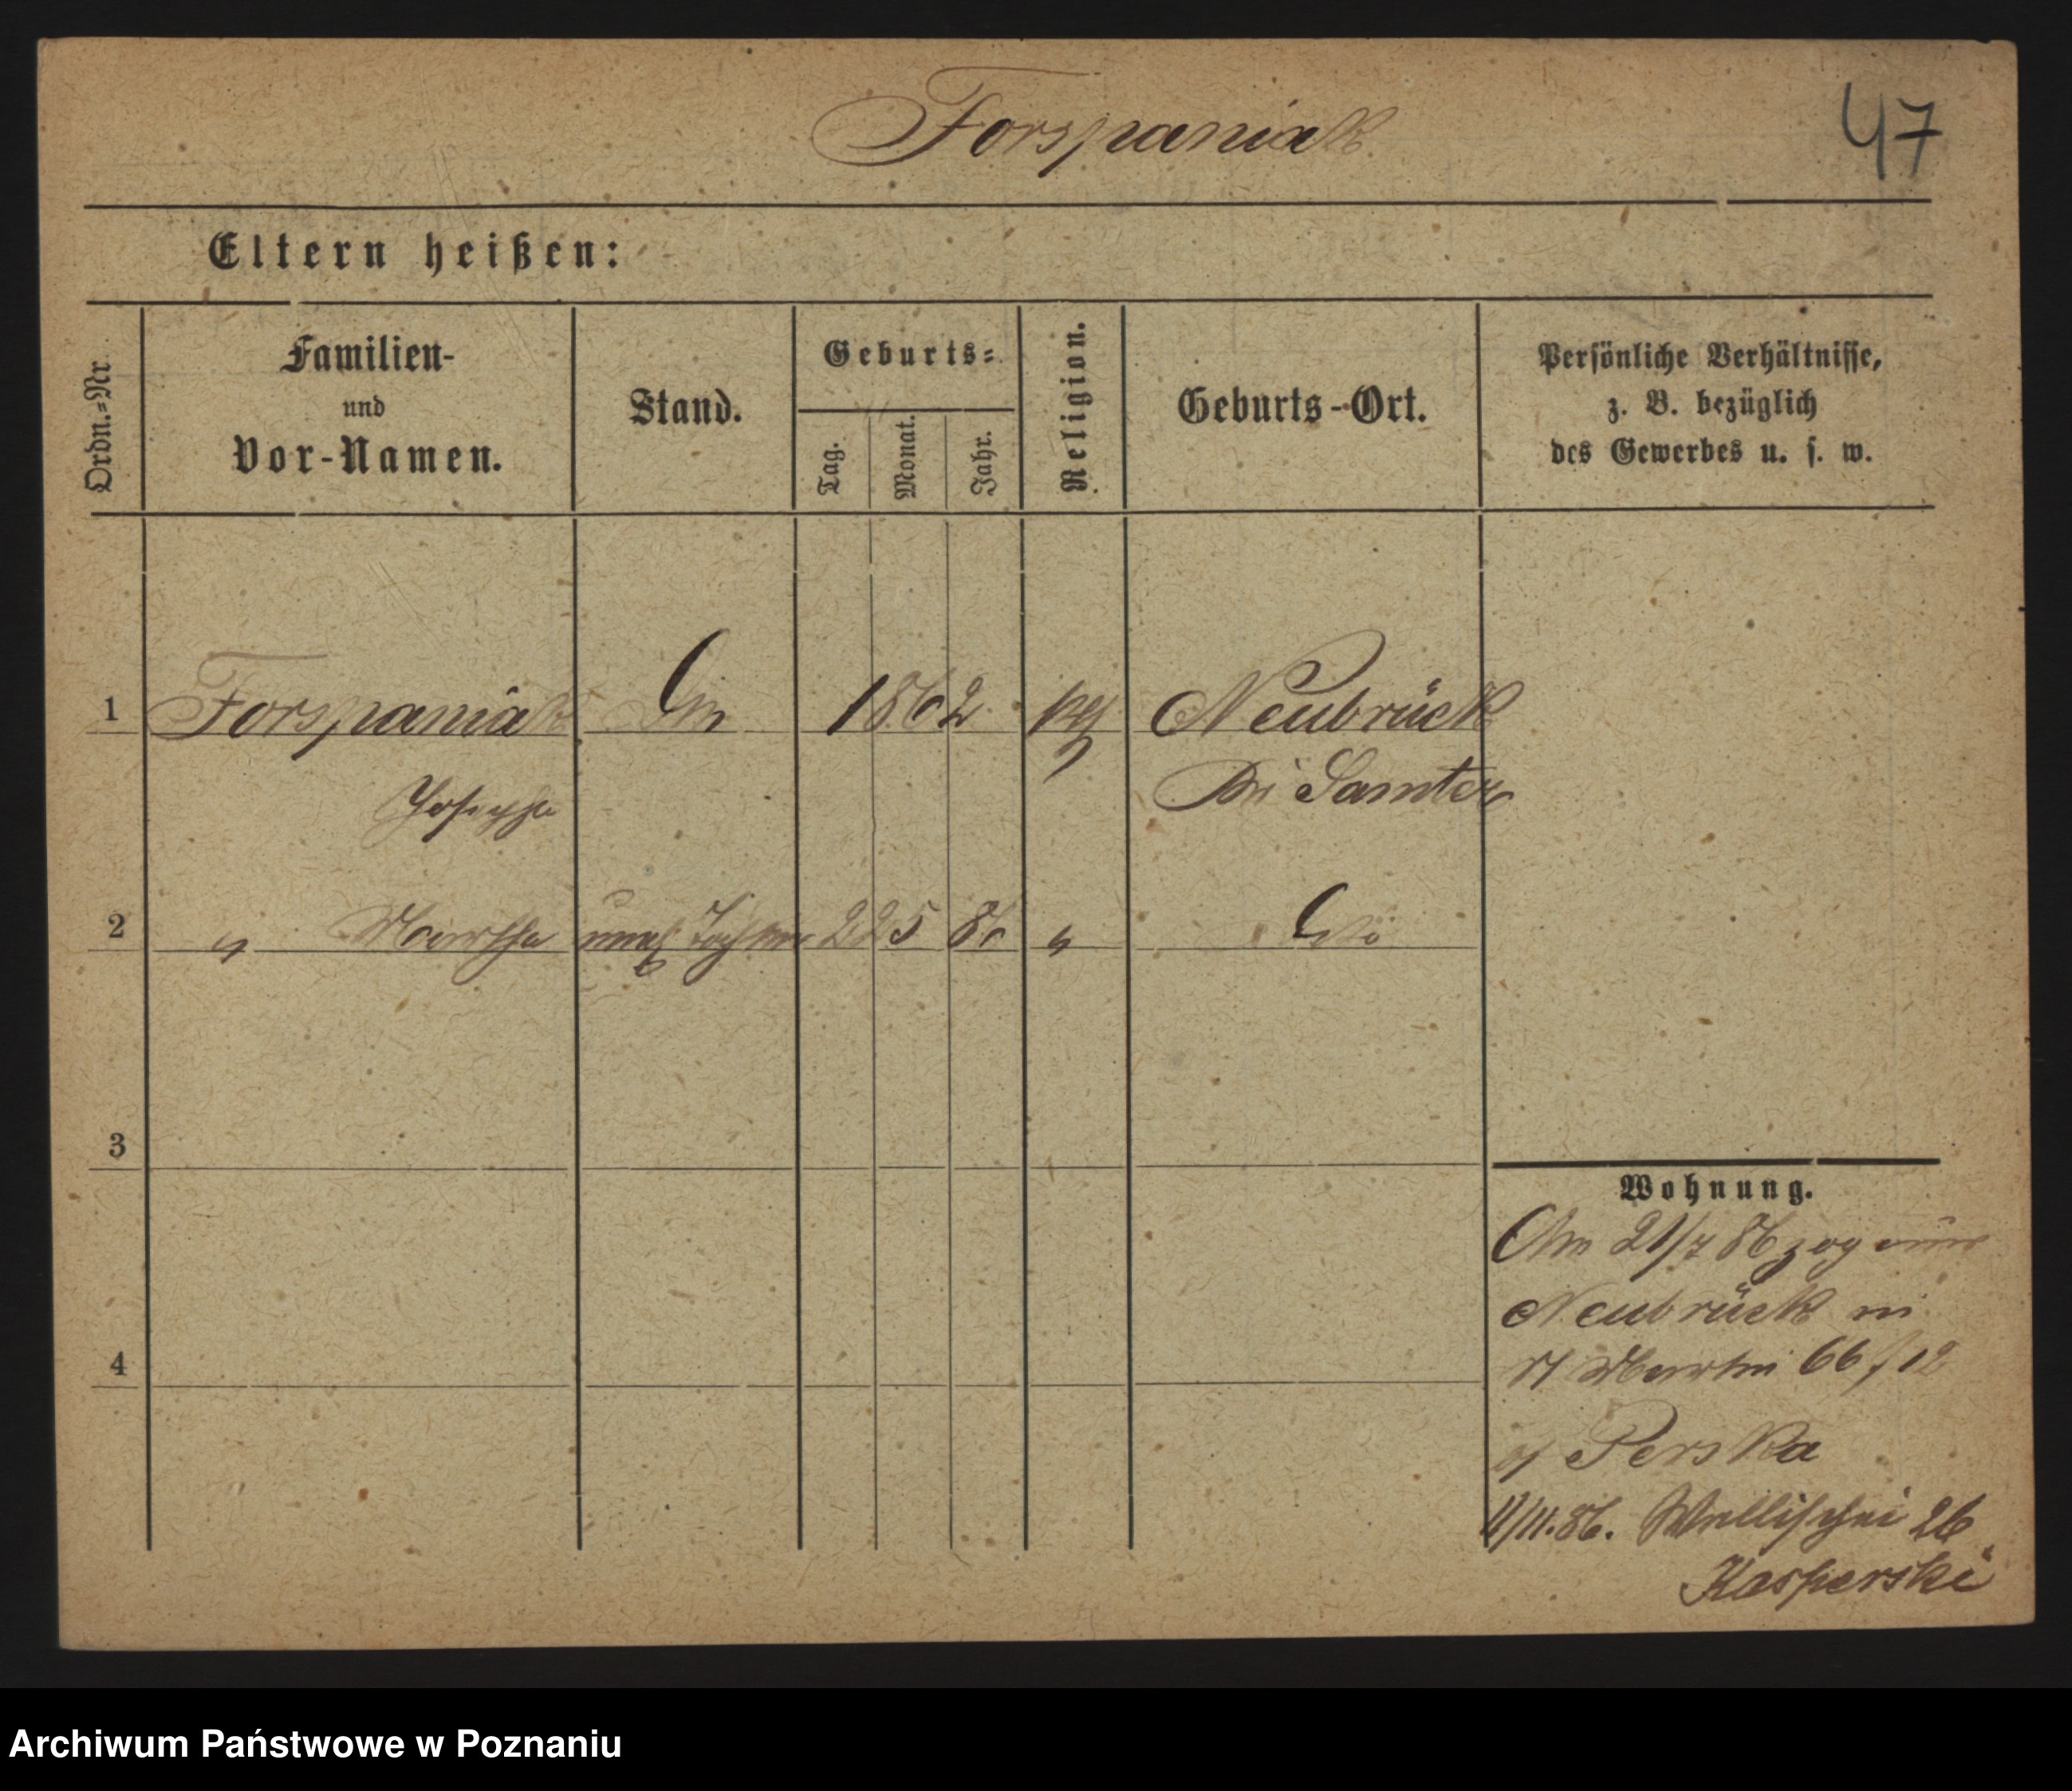 Forspaniak
47
Eltern heißen:
Ordn.-Nr
Familien-
und
Vor-Namen.
Stand.
Geburts-
Tag.
Monat.
Jahr.
Religion.
Geburts-Ort.
Persönliche Verhältnisse,
z. B. bezüglich
des Gewerbes u. s. w.
1 Forspaniak 1862 Neubrück
Josepha bei Samter
2 " Martha uneh Tochter 22 5 86 "
3
4
Wohnung.
Am 21/7 86 zog aus
Neubrück in
St Martin 66
Perska
11/11.86. Wallischei 26
Kasperski
Archiwum Państwowe w Poznaniu